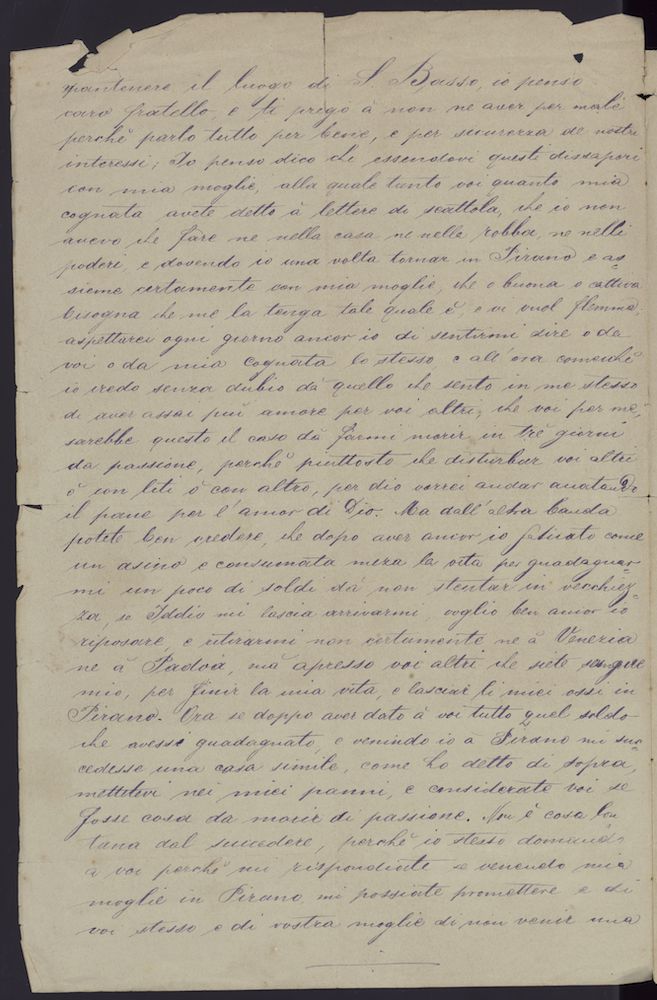 mantenere il luogo di S. Basso, io penso
caro fratello, e ti prego à non ne aver per male
perchè parlo tutto per bene, e per sicurezza de nostri
interessi; Io penso dico che essendovi questi dissapori
con mia moglie, alla quale tanto voi quanto mia
cognata avete detto à lettere di scattola, che io non
avevo che fare ne nella casa ne nelle robba, ne nelli
poderi, e dovendo io una volta tornar in Pirano e as=
sieme certamente con mia moglie, che o buona o cattiva
bisogna che me la tenga tale quale è, e vi vuol flemma;
aspettarei ogni giorno ancor io di sentirmi dire o da
voi o da mia cognata lo stesso, e all'ora comecchè
io credo senza dubio dà quello che sento in me stesso
di aver assai più amore per voi altri, che voi per me,
sarebbe questo il caso dà farmi morir in trè giorni
da passione, perchè piuttosto che disturbar voi altri
ò con liti ò con altro, per dio vorrei andar
il pane per l'amor di Dio. Ma dall'altra banda
potete ben credere, che dopo aver ancor io faticato come
un asino e consumata meza la vita per guadagnar=
mi un poco di soldi dà non stentar in vecchiez=
za, se Iddio mi lascia arrivarmi, voglio ben ancor io
riposare, e ritirarmi non certamente ne à Venezia
ne à Padoa, mà apresso voi altri che siete sangue
mio, per finir la mia vita, e lasciar li miei ossi in
Pirano. Ora se doppo aver dato à voi tutto quel soldo
che avessi guadagnato, e venindo io à Pirano mi suc=
cedesse una casa simile, come ho detto di sopra,
mettetevi nei miei panni, e considerate voi se
fosse cosa da morir di passione. Non è cosa lon
tana dal succedere, perchè io stesso domando
a voi perchè mi rispondiate se venendo mia
moglie in Pirano, mi possiate promettere e di
voi stesso e di vostra moglie di non venir mia